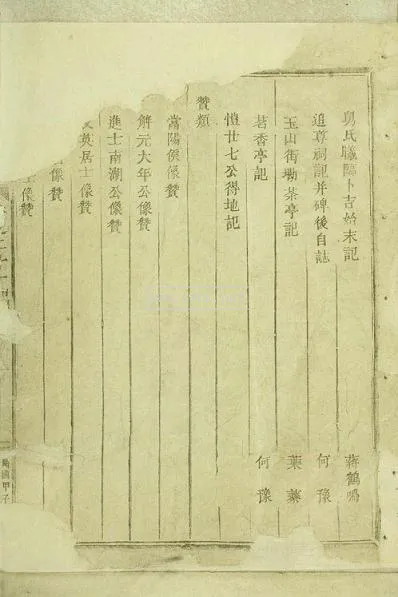 氏卜吉始末記　蔣鶴鳴
追尊祠記并碑後自誌　何豫
玉山街茶亭記　葉
茗香亭記　何豫
愷廿七公得地記
贊類
當陽侯像贊
解元大年公像贊
進士南湖公像贊
英居士像贊
像贊
像贊
民國甲子